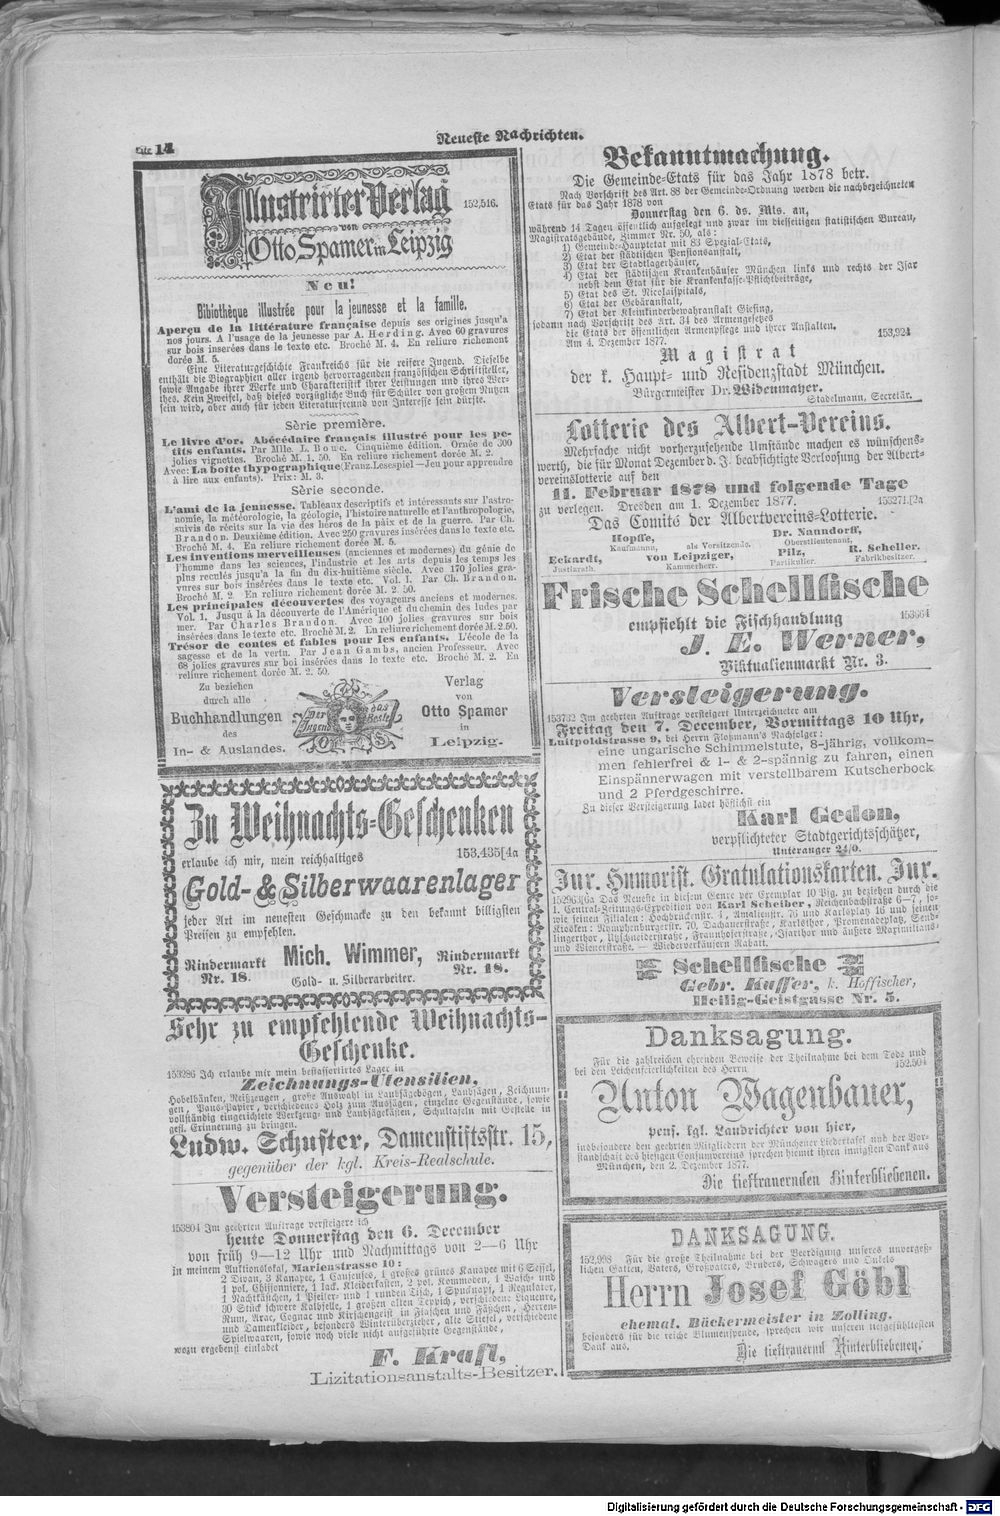 14
Neueste Nachrichten.
Illustrirter Verlag
152,516.
von
Otto Spamer in Leipzig
Neu!
Bibiothèque illustrée pour la jeunesse et la famille.
Aperçu de la littérature française depuis ses origines jusqu'a
nos jours. A l'usage de la jeunesse par A. Herding. Avec 60 gravures
sur bois inserées dans le texte etc. Broché M. 4. En reliure richement
dorée M. 5.
Eine Literaturgeschichte Frankreichs für die reifere Jugend. Dieselbe
enthält die Biographien aller irgend hervorragenden französischen Schriftsteller,
sowie Angabe ihrer Werke und Charakteristik ihrer Leistungen und ihres Wer-
thes. Kein Zweifel, daß dieses vorzügliche Buch für Schüler von großem Nutzen
sein wird, aber auch für jeden Literaturfreund von Interesse sein dürfte.
Sèrie première.
Le livre d'or. Abécédaire français illustré pour les pe-
tits enfants. Par Mlle. L. Bowe. Cinquième édition. Ornée de 300
jolies vignettes. Broché M. 1. 50. En reliure richement dorée M. 2.
Avec: La boîte thypographique (Franz. Lesespiel — Jeu pour apprendre
à lire aux enfants). Prix: M. 3.
Sèrie seconde.
L'ami de la jeunesse. Tableaux descriptifs et intéressants sur l'astro-
nomie, la météorologie, la géologie, l'histoire naturelle et l'anthropologie,
suivis de récits sur la vie des héros de la paix et de la guerre. Par Ch.
Brandon. Deuxième édition. Avec 250 gravures insérées dans le texte etc.
Broché M. 4. En reliure richement dorée M. 5.
Les inventions merveilleuses (anciennes et modernes) du génie de
l'homme dans les sciences, l'industrie et les arts depuis les temps les
plus reculés jusqu'a la fin du dix-huitième siècle. Avec 170 jolies gra-
vures sur bois insérées dans le texte etc. Vol. I. Par Ch. Brandon.
Broché M. 2. En reliure richement dorée M. 2. 50.
Les principales découvertes des voyageurs anciens et modernes.
Vol. 1. Jusqu'à la découverte de l'Amérique et du chemin des Indes par
mer. Par Charles Brandon. Avec 100 jolies gravures sur bois
insérées dans le texte etc. Broché M. 2. En reliure richement dorée M. 2.50.
Trésor de contes et fables pour les enfants. L'école de la
sagesse et de la vertu. Par Jean Gambs, ancien Professeur. Avec
68 jolies gravures sur boi insérées dans le texte etc. Broché M. 2. En
reliure richement dorée M. 2. 50.
Zu beziehen
durch alle
Buchhandlungen
des
In- & Auslandes.
Der Jugend das Beste
Verlag
von
Otto Spamer
in
Leipzig.
Zu Weihnachts-Geschenken
erlaube ich mir, mein reichhaltiges
153,435[4a
Gold- & Silberwaarenlager
jeder Art im neuesten Geschmacke zu den bekannt billigsten
Preisen zu empfehlen.
Rindermarkt Nr. 18.
Mich. Wimmer,
Gold- u. Silberarbeiter.
Rindermarkt Nr. 18.
Sehr zu empfehlende Weihnachts-
Geschenke.
153286 Ich erlaube mir mein bestassortirtes Lager in
Zeichnungs-Utensilien,
Hobelbänken, Reißzeugen, große Auswahl in Laubsägebögen, Laubsägen, Zeichnun-
gen, Paus-Papier, verschiedenes Holz zum Aussägen, einzelne Gegenstände, sowie
vollständig eingerichtete Werkzeug- und Laubsägekästen, Schultafeln mit Gestelle in
gefl. Erinnerung zu bringen.
Ludw. Schuster, Damenstiftsstr. 15,
gegenüber der kgl. Kreis-Realschule.
Versteigerung.
153804 Im geehrten Auftrage versteigere ich
heute Donnerstag den 6. December
von früh 9—12 Uhr und Nachmittags von 2—6 Uhr
in meinem Auktionslokal, Marienstrasse 10:
2 Divan, 3 Kanapee, 1 Causeuse, 1 großes grünes Kanapee mit 6 Sessel,
1 pol. Chiffonniere, 1 lack. Kleiderkasten, 2 pol. Kommoden, 1 Wasch- und
1 Nachtkästchen, 1 Pfeiler- und 1 runden Tisch, 1 Spucknapf, 1 Regulator,
30 Stück schwere Kalbfelle, 1 großen alten Teppich, verschiedene Liqueure,
Rum, Arac, Cognac und Kirschengeist in Flaschen und Fäßchen, Herren-
und Damenkleider, besonders Winterüberzieher, alte Stiefel, verschiedene
Spielwaaren, sowie noch viele nicht aufgeführte Gegenstände,
wozu ergebenst einladet
F. Kraft,
Lizitationsanstalts-Besitzer.
Bekanntmachung.
Die Gemeinde-Etats für das Jahr 1878 betr.
Nach Vorschrift des Art. 88 der Gemeinde-Ordnung werden die nachbezeichneten
Etats für das Jahr 1878 von
Donnerstag den 6. ds. Mts. an,
während 14 Tagen öffentlich aufgelegt und zwar im diesseitigen statistischen Bureau,
Magistratsgebäude, Zimmer Nr. 50, als:
1) Gemeinde-Hauptetat mit 83 Spezial-Etats,
2) Etat der städtischen Pensionsanstalt,
3) Etat der Stadtlagerhäuser,
4) Etat der städtischen Krankenhäuser München links und rechts der Isar
nebst dem Etat für die Krankenkasse-Pflichtbeiträge,
5) Etat des St. Nicolaispitals,
6) Etat der Gebäranstalt,
7) Etat der Kleinkinderbewahranstalt Giesing,
sodann nach Vorschrift des Art. 34 des Armengesetzes
die Etats der öffentlichen Armenpflege und ihrer Anstalten.
Am 4. Dezember 1877.
153,924
Magistrat
der k. Haupt- und Residenzstadt München.
Bürgermeister Dr. Widenmayer.
Stadelmann, Secretär.
Lotterie des Albert-Vereins.
Mehrfache nicht vorherzusehende Umstände machen es wünschens-
werth, die für Monat Dezember d. J. beabsichtigte Verloosung der Albert-
vereinslotterie auf den
11. Februar 1878 und folgende Tage
zu verlegen. Dresden am 1. Dezember 1877.
153271.[2a
Das Comité der Albertvereins-Lotterie.
Hopffe,
Kaufmann, als Vorsitzende.
Dr. Naundorff,
Oberstlieutenant,
Eckardt,
Justizrath.
von Leipziger,
Kammerherr.
Pilz,
Partikulier.
R. Scheller.
Fabrikbesitzer.
Frische Schellfische
empfiehlt die Fischhandlung
153664
J. E. Werner,
Viktualienmarkt Nr. 3.
Versteigerung.
153732 Im geehrten Auftrage versteigert Unterzeichneter am
Freitag den 7. December, Vormittags 10 Uhr,
Luitpoldstrasse 9, bei Herrn Floßmann's Nachfolger:
eine ungarische Schimmelstute, 8-jährig, vollkom-
men fehlerfrei & 1- & 2-spännig zu fahren, einen
Einspännerwagen mit verstellbarem Kutscherbock
und 2 Pferdgeschirre.
Zu dieser Versteigerung ladet höflichst ein
Karl Gedon,
verpflichteter Stadtgerichtsschätzer,
Unteranger 24/0.
Jux. Humorist. Gratulationskarten. Jux.
152963[6a Das Neueste in diesem Genre per Exemplar 10 Pfg. zu beziehen durch die
I. Central-Zeitungs-Expedition von Karl Scheiber, Reichenbachstraße 6—7, so-
wie seinen Filialen: Hochbrückenstr. 4, Amalienstr. 76 und Karlsplatz 16 und seinen
Kiosken: Nymphenburgerstr. 70, Dachauerstraße, Karlsthor, Promenadeplatz, Send-
lingerthor, Utzschneiderstraße, Fraunhoferstraße, Isarthor und äußere Maximilians-
und Wienerstraße. — Wiederverkäufern Rabatt.
Schellfische
Gebr. Kuffer, k. Hoffischer,
Heilig-Geistgasse Nr. 5.
Danksagung.
Für die zahlreichen ehrenden Beweise der Theilnahme bei dem Tode und
bei den Leichenfeierlichkeiten des Herrn
152,504
Anton Wagenbauer,
pens. kgl. Landrichter von hier,
insbesondere den geehrten Mitgliedern der Münchener Liedertafel und der Vor-
standschaft des hiesigen Consumvereins sprechen hiemit ihren innigsten Dank aus
München, den 2. Dezember 1877.
Die tieftrauernden Hinterbliebenen.
DANKSAGUNG.
152,998 Für die große Theilnahme bei der Beerdigung unseres unvergeß-
lichen Gatten, Vaters, Großvaters, Bruders, Schwagers und Onkels
Herrn Josef Göbl
ehemal. Bäckermeister in Zolling.
besonders für die reiche Blumenspende, sprechen wir unseren tiefgefühltesten
Dank aus.
Die tieftrauernd Hinterbliebenen.
Digitalisierung gefördert durch die Deutsche Forschungsgemeinschaft - DFG